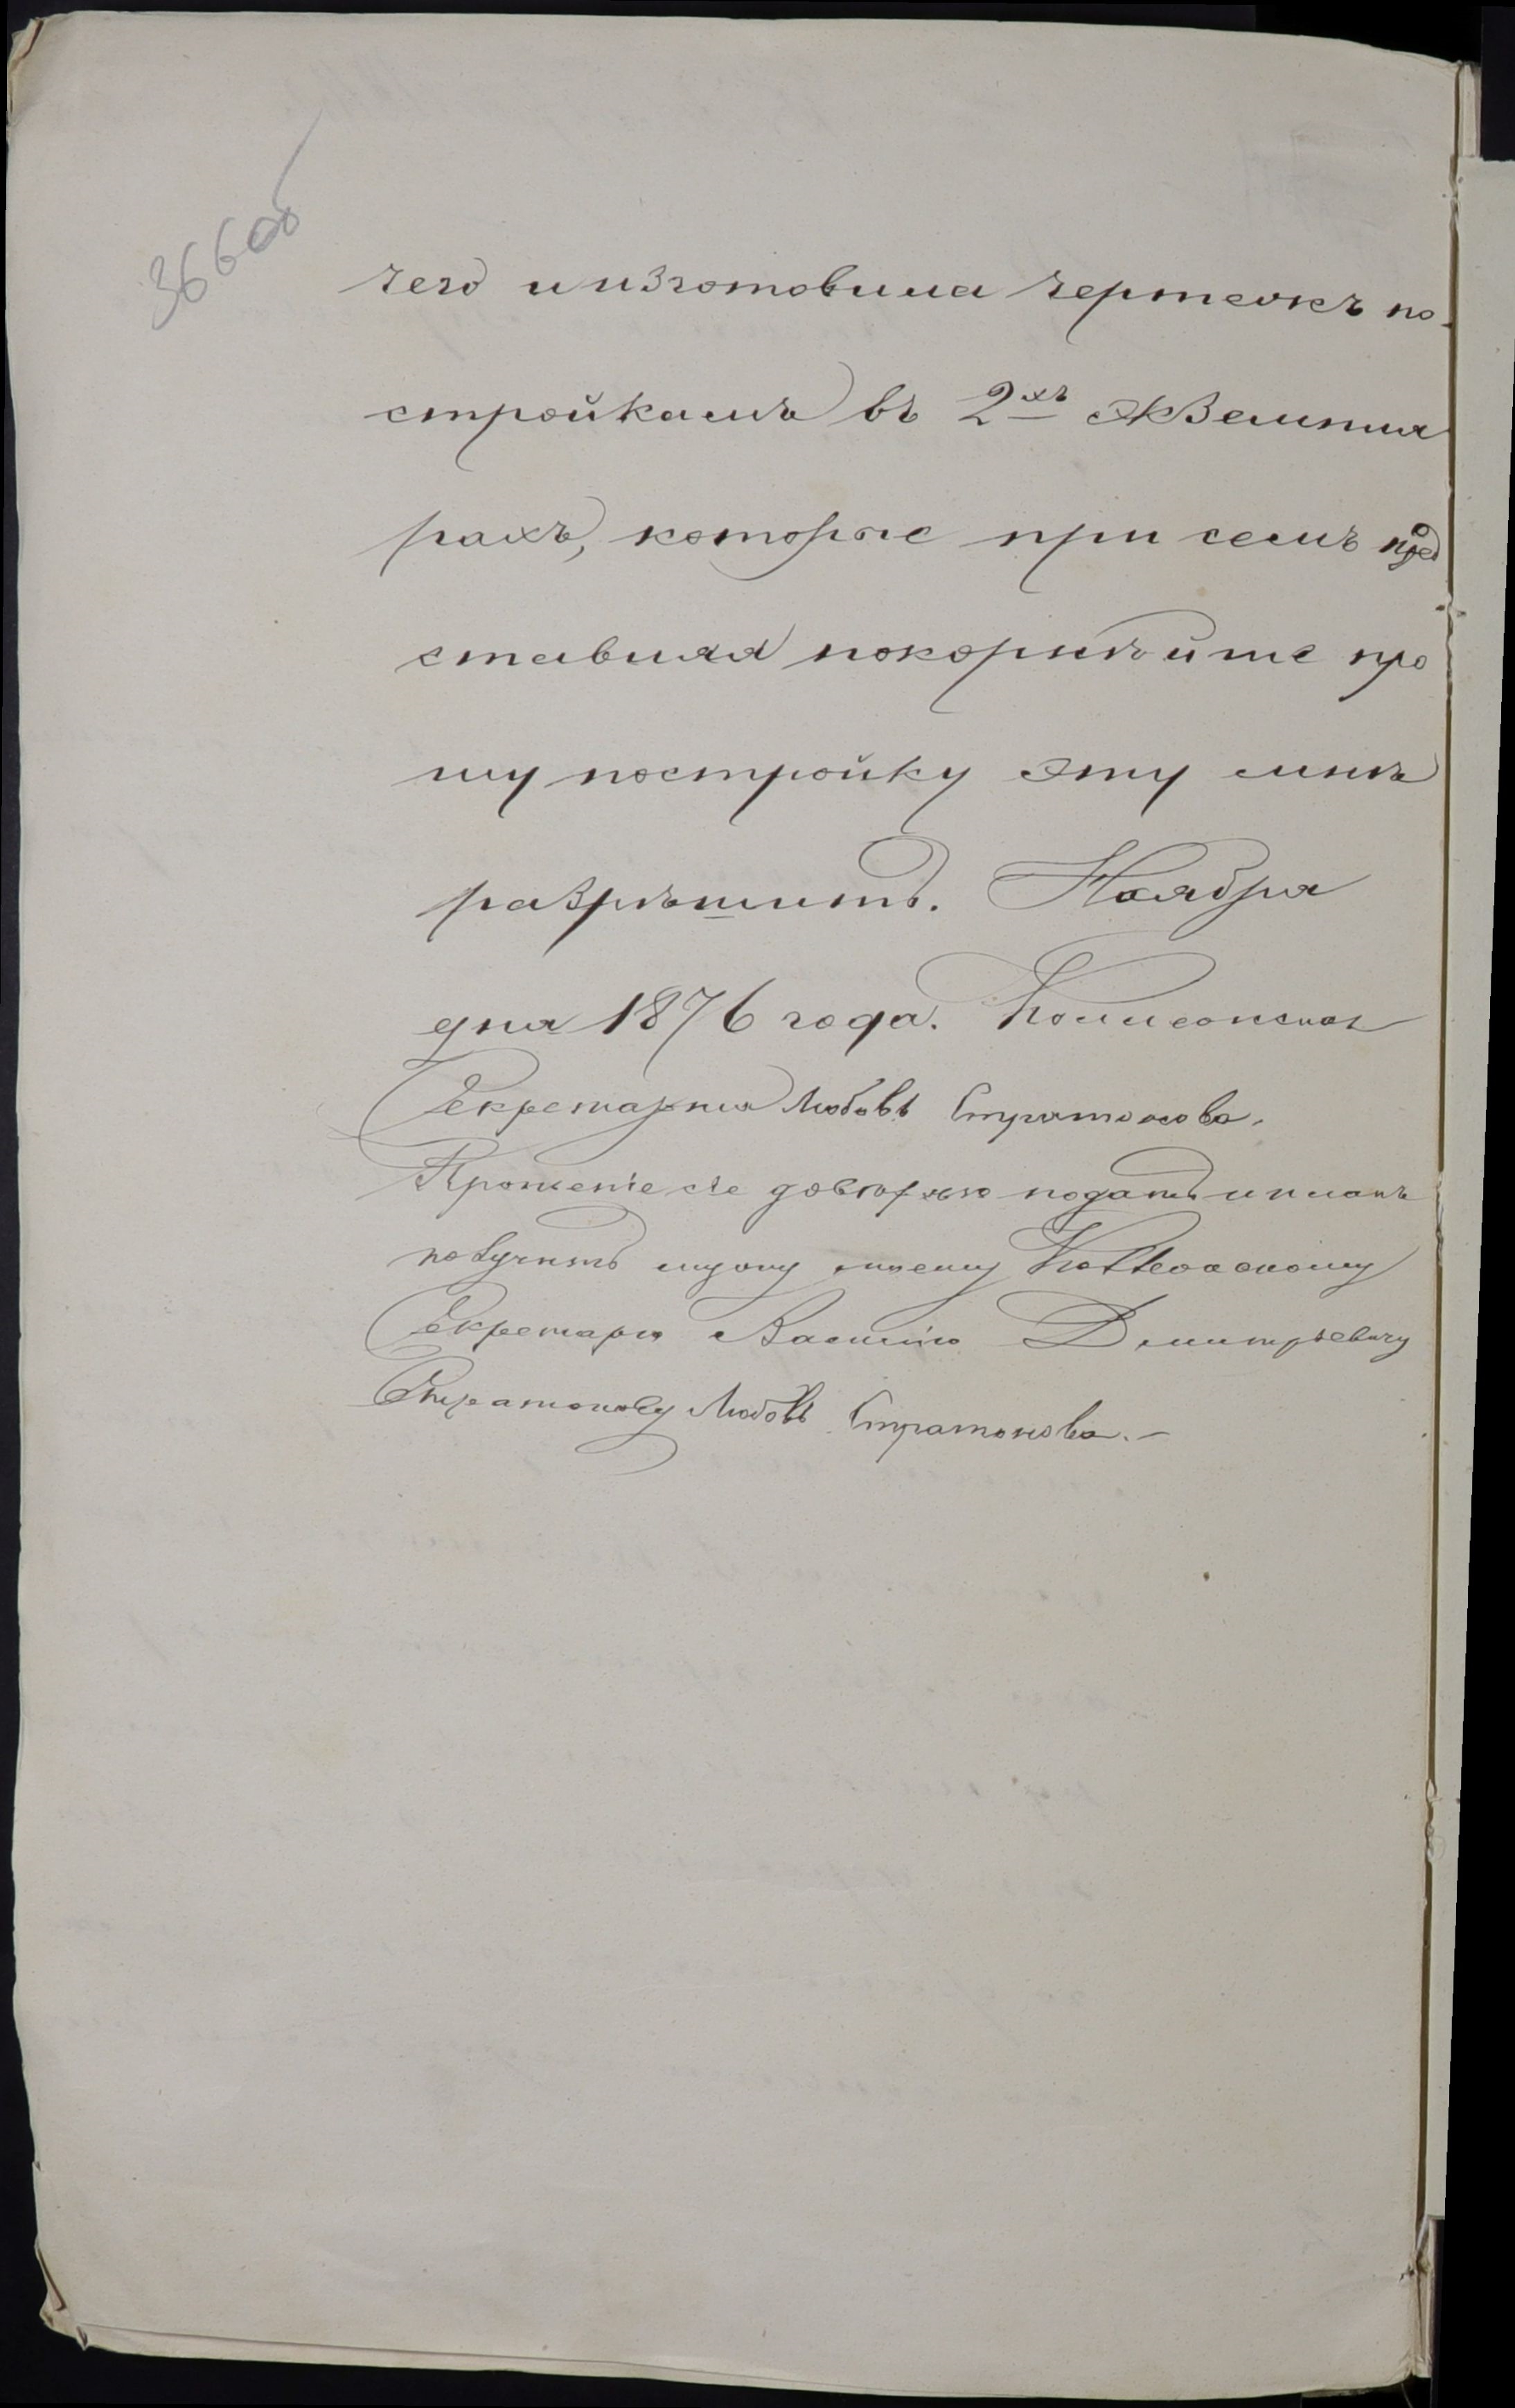 36600
чего и изготовила чертежъ по-
стройкамъ въ 2хъ экземпля
рахъ, которые при семъ пред
ставляя покорнѣйше про
шу постройку эту мнѣ
разрѣшить. Ноября
дня 1876 года. Коллежская
Секретарша Любовь Стратонова.
Прошеніе сіе довѣряю подать и планъ
получить мужу моему Коллежскому
Секретарю Василію Дмитріевичу
Стратонову Любовь Стратонова.-